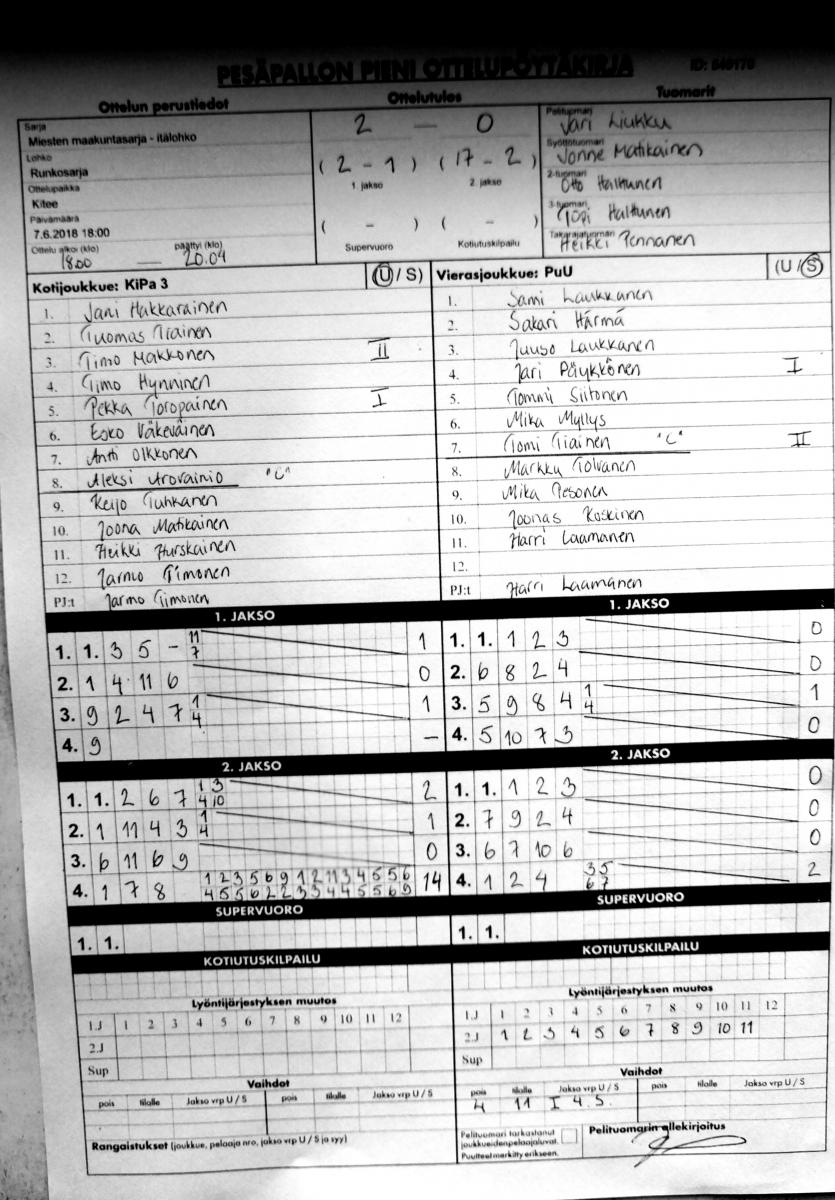 PESÄPALLON PIENI OTTELUPÖYTÄKIRJA
ID: 848178
Ottelun perustiedot
Ottelutulos
Tuomarit
Sarja
Miesten maakuntasarja - itälohko
Lohko
Runkosarja
Ottelupaikka
Kitee
Päivämäärä
7.6.2018 18:00
Ottelu alkoi (klo) päättyi (klo)
18.00 — 20.04
2 — 0
(2 - 1) (17 - 2)
1. jakso 2. jakso
( - ) ( - )
Supervuoro Kotiutuskilpailu
Pelituomari
Jari Liukku
Syöttötuomari
Jonne Matikainen
2-tuomari
Otto Halttunen
3-tuomari
Topi Halttunen
Takarajatuomari
Heikki Pennanen
Kotijoukkue: KiPa 3 (U / S)
1. Jani Hakkarainen
2. Tuomas Tiainen
3. Timo Makkonen II
4. Timo Hynninen
5. Pekka Toropainen I
6. Esko Väkeväinen
7. Antti Olkkonen
8. Aleksi Urovainio "C"
9. Keijo Tuhkanen
10. Joona Matikainen
11. Heikki Hurskainen
12. Jarmo Timonen
PJ:t Jarmo Timonen
Vierasjoukkue: PuU (U / S)
1. Sami Laukkanen
2. Sakari Härmä
3. Juuso Laukkanen
4. Jari Päykkönen I
5. Tommi Siitonen
6. Mika Myllys
7. Tomi Tiainen "C" II
8. Markku Tolvanen
9. Mika Pesonen
10. Joonas Koskinen
11. Harri Laamanen
12.
PJ:t Harri Laamanen
1. JAKSO
1. 1. 3 5 - 11 1
7
2. 1 4 11 6 0
3. 9 2 4 7 1 1
4
4. 9 —
1. JAKSO
1. 1. 1 2 3 0
2. 6 8 2 4 0
3. 5 9 8 4 1 1
4
4. 5 10 7 3 0
2. JAKSO
1. 1. 2 6 7 1 3 2
4 10
2. 1 11 4 3 1 1
4
3. 6 11 6 9 0
4. 1 7 8 1 2 3 5 6 9 1 2 11 3 4 5 5 6 14
4 5 5 6 2 2 3 3 4 4 5 5 6 9
2. JAKSO
1. 1. 1 2 3 0
2. 7 9 2 4 0
3. 6 7 10 6 0
4. 1 2 4 3 5 2
6 7
SUPERVUORO
1. 1.
SUPERVUORO
1. 1.
KOTIUTUSKILPAILU
KOTIUTUSKILPAILU
Lyöntijärjestyksen muutos
1.J 1 2 3 4 5 6 7 8 9 10 11 12
2.J
Sup
Lyöntijärjestyksen muutos
1.J 1 2 3 4 5 6 7 8 9 10 11 12
2.J 1 2 3 4 5 6 7 8 9 10 11
Sup
Vaihdot
pois tilalle Jakso vrp U / S pois tilalle Jakso vrp U / S
Vaihdot
pois tilalle Jakso vrp U / S pois tilalle Jakso vrp U / S
4 11 I 4. S.
Rangaistukset (joukkue, pelaaja nro, jakso vrp U / S ja syy)
Pelituomari tarkastanut
joukkueidenpelaajaluvat.
Puutteet merkitty erikseen.
Pelituomarin allekirjoitus